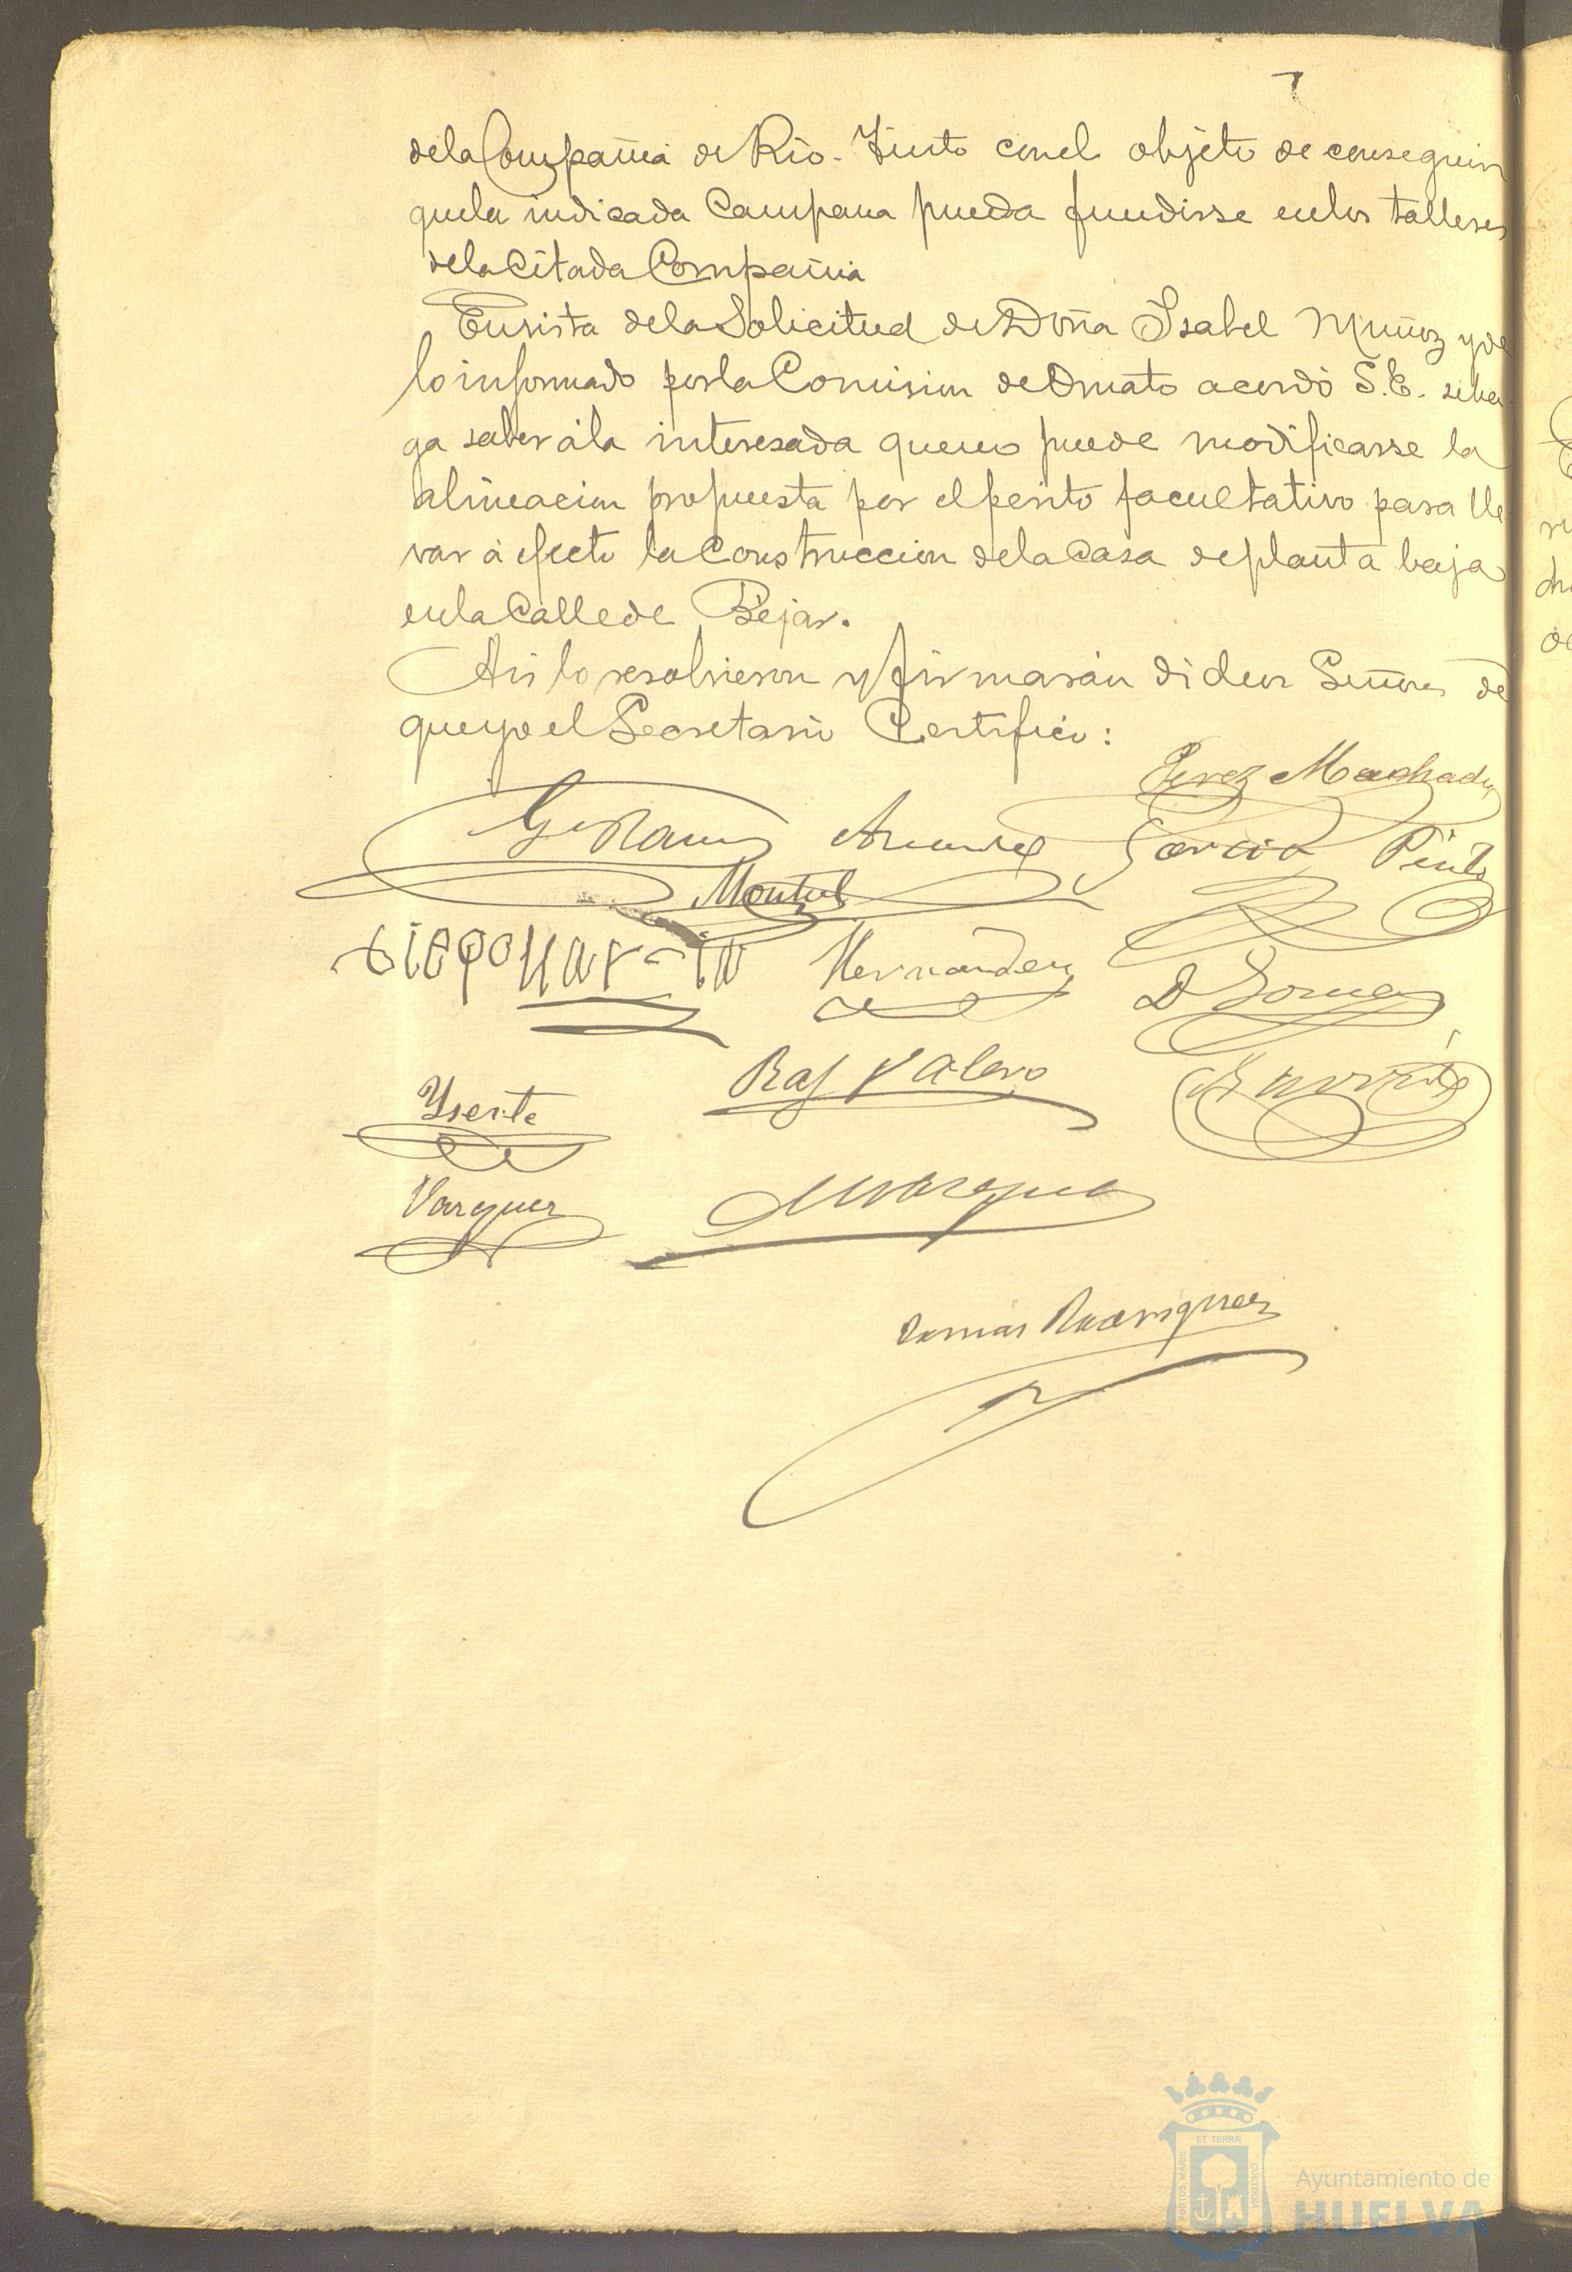 de la Compañia de Rio-Tinto con el objeto de conseguir
que la indicada Campana pueda fundirse en los talleres
de la Citada Compañia
En vista de la Solicitud de Doña Isabel Muñoz y de
lo informado por la Comision de Ornato acordó S.E. se ha-
ga saber á la interesada que no puede modificarse la
alineacion propuesta por el perito facultativo para lle
var á efecto la Construccion de la Casa de planta baja
en la Calle de Béjar.
Asi lo resolvieron y firmarán dichos Señores de
que yo el Secretario Certifico:
Perez Machado
Garcia Pinto
Montiel
Diego Martin Hernandez D Gomez
Raf Valero
Yserte
Vazquez
Tomás Rodriguez
ET TERRÆ
PORTUS MARIS
CUSTODIA
Ayuntamiento de
HUELVA